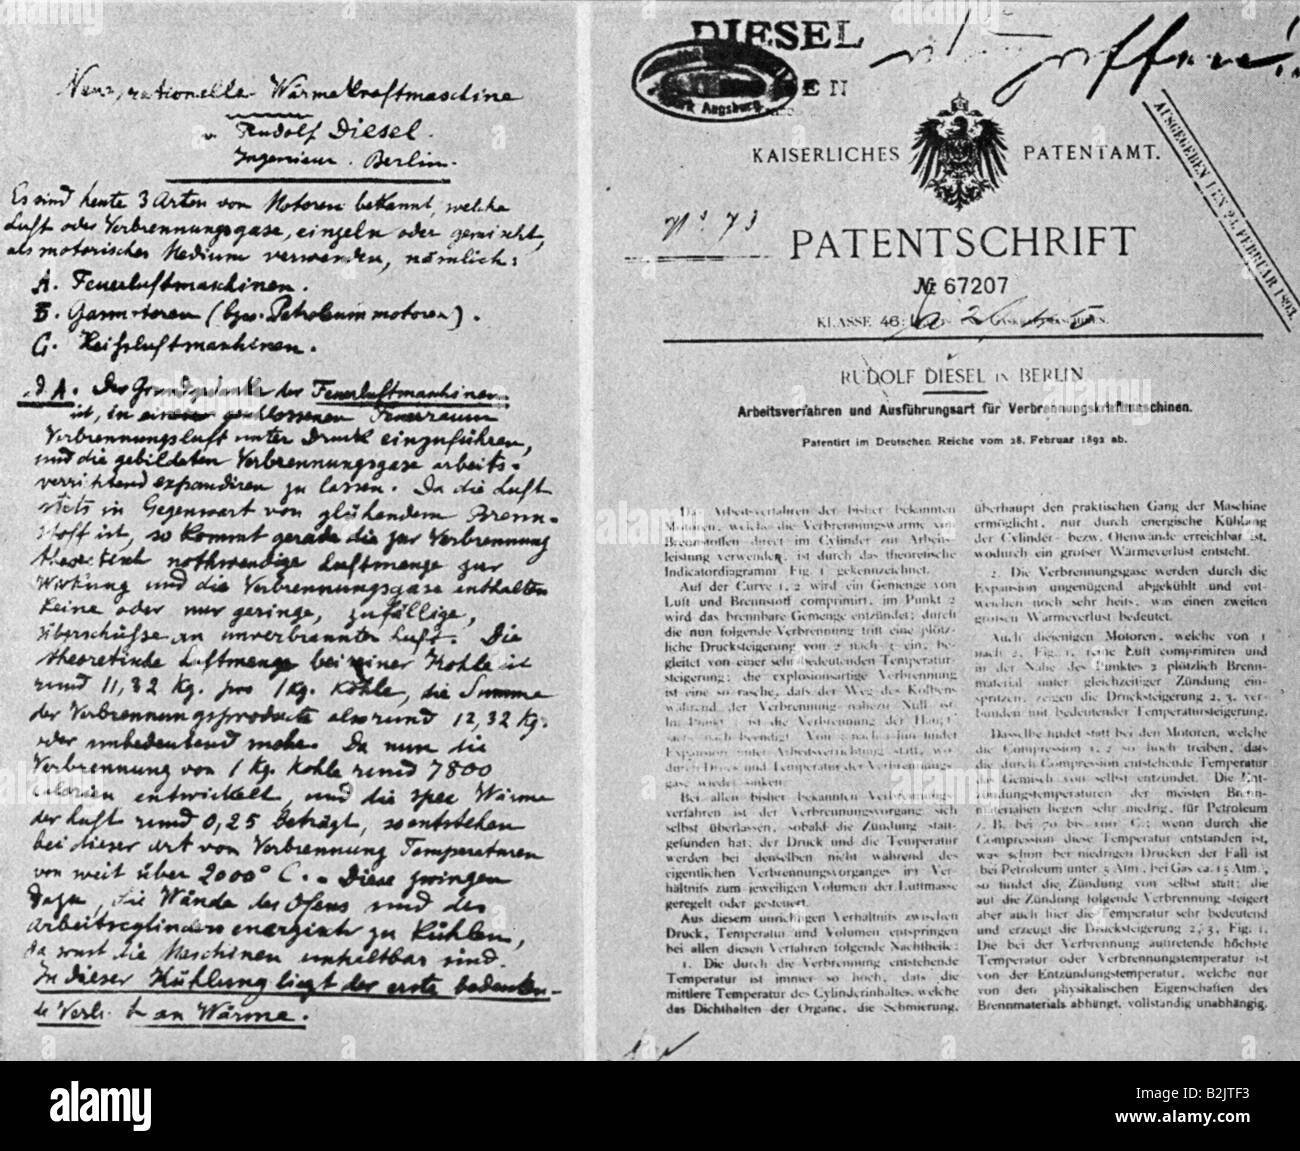 Neue, rationelle Wärmekraftmaschine
v. Rudolf Diesel.
Ingenieur. Berlin.
Es sind heute 3 Arten von Motoren bekannt, welche
Luft oder Verbrennungsgase, einzeln oder gemischt,
als motorisches Medium verwenden, nämlich:
A. Feuerluftmaschinen.
B. Gasmotoren (bzw. Petroleummotoren).
C. Heissluftmaschinen.
ad A. Der Grundgedanke der Feuerluftmaschinen
ist, in einem geschlossenen Feuerraum
Verbrennungsluft unter Druck einzuführen,
und die gebildeten Verbrennungsgase arbeits-
verrichtend expandiren zu lassen. Da die Luft
stets in Gegenwart von glühendem Brenn-
stoff ist, so kommt gerade die zur Verbrennung
theoretisch nothwendige Luftmenge zur
Wirkung und die Verbrennungsgase enthalten
keine oder nur geringe, zufällige,
Überschüsse an unverbrannter Luft. Die
theoretische Luftmenge bei reiner Kohle ist
rund 11,32 Kg. pro 1 Kg. Kohle, die Summe
der Verbrennungsprodukte also rund 12,32 Kg.
oder unbedeutend mehr. Da nun die
Verbrennung von 1 Kg. Kohle rund 7800
Calorien entwickelt, und die spec. Wärme
der Luft rund 0,25 beträgt, so entstehen
bei dieser Art von Verbrennung Temperaturen
von weit über 2000° C. – Diese zwingen
dazu, die Wände des Ofens und des
Arbeitscylinders energisch zu kühlen,
da sonst die Maschinen unhaltbar sind.
In dieser Kühlung liegt der erste bedeuten-
de Verlust an Wärme.
DIESEL
Augsburg
KAISERLICHES PATENTAMT.
AUSGEGEBEN DEN 23. FEBRUAR 1893.
No 73
PATENTSCHRIFT
№ 67207
KLASSE 46:
RUDOLF DIESEL IN BERLIN
Arbeitsverfahren und Ausführungsart für Verbrennungskraftmaschinen.
Patentirt im Deutschen Reiche vom 28. Februar 1892 ab.
Das Arbeitsverfahren der bisher bekannten
Motoren, welche die Verbrennungswärme von
Brennstoffen direct im Cylinder zur Arbeits-
leistung verwenden, ist durch das theoretische
Indicatordiagramm Fig. 1 gekennzeichnet.
Auf der Curve 1, 2 wird ein Gemenge von
Luft und Brennstoff comprimirt, im Punkt 2
wird das brennbare Gemenge entzündet; durch
die nun folgende Verbrennung tritt eine plötz-
liche Drucksteigerung von 2 nach 3 ein, be-
gleitet von einer sehr bedeutenden Temperatur-
steigerung; die explosionsartige Verbrennung
ist eine so rasche, dafs der Weg des Kolbens
während der Verbrennung nahezu Null ist.
Im Punkt 3 ist die Verbrennung der Haupt-
sache nach beendigt. Von 3 nach 4 findet
Expansion unter Arbeitsverrichtung statt, wo-
durch Druck und Temperatur der Verbrennungs-
gase wieder sinken.
Bei allen bisher bekannten Verbrennungs-
verfahren ist der Verbrennungsvorgang sich
selbst überlassen, sobald die Zündung statt-
gefunden hat; der Druck und die Temperatur
werden bei denselben nicht während des
eigentlichen Verbrennungsvorganges im Ver-
hältnifs zum jeweiligen Volumen der Luftmasse
geregelt oder gesteuert.
Aus diesem unrichtigen Verhältnifs zwischen
Druck, Temperatur und Volumen entspringen
bei allen diesen Verfahren folgende Nachtheile:
1. Die durch die Verbrennung entstehende
Temperatur ist immer so hoch, dafs die
mittlere Temperatur des Cylinderinhaltes, welche
das Dichthalten der Organe, die Schmierung,
überhaupt den praktischen Gang der Maschine
ermöglicht, nur durch energische Kühlung
der Cylinder- bezw. Ofenwände erreichbar ist,
wodurch ein grofser Wärmeverlust entsteht.
2. Die Verbrennungsgase werden durch die
Expansion ungenügend abgekühlt und ent-
weichen noch sehr heifs, was einen zweiten
grofsen Wärmeverlust bedeutet.
Auch diejenigen Motoren, welche von 1
nach 2, Fig. 1, reine Luft comprimiren und
in der Nähe des Punktes 2 plötzlich Brenn-
material unter gleichzeitiger Zündung ein-
spritzen, zeigen die Drucksteigerung 2, 3, ver-
bunden mit bedeutender Temperatursteigerung.
Dasselbe findet statt bei den Motoren, welche
die Compression 1, 2 so hoch treiben, dafs
die durch Compression entstehende Temperatur
das Gemisch von selbst entzündet. Die Ent-
zündungstemperaturen der meisten Brenn-
materialien liegen sehr niedrig, für Petroleum
z. B. bei 70 bis 100° C.; wenn durch die
Compression diese Temperatur entstanden ist,
was schon bei niedrigen Drucken der Fall ist
bei Petroleum unter 5 Atm., bei Gas ca. 15 Atm.,
so findet die Zündung von selbst statt; die
auf die Zündung folgende Verbrennung steigert
aber auch hier die Temperatur sehr bedeutend
und erzeugt die Drucksteigerung 2, 3, Fig. 1.
Die bei der Verbrennung auftretende höchste
Temperatur oder Verbrennungstemperatur ist
von der Entzündungstemperatur, welche nur
von den physikalischen Eigenschaften des
Brennmaterials abhängt, vollständig unabhängig.
alamy
Image ID: B2JTF3
www.alamy.com